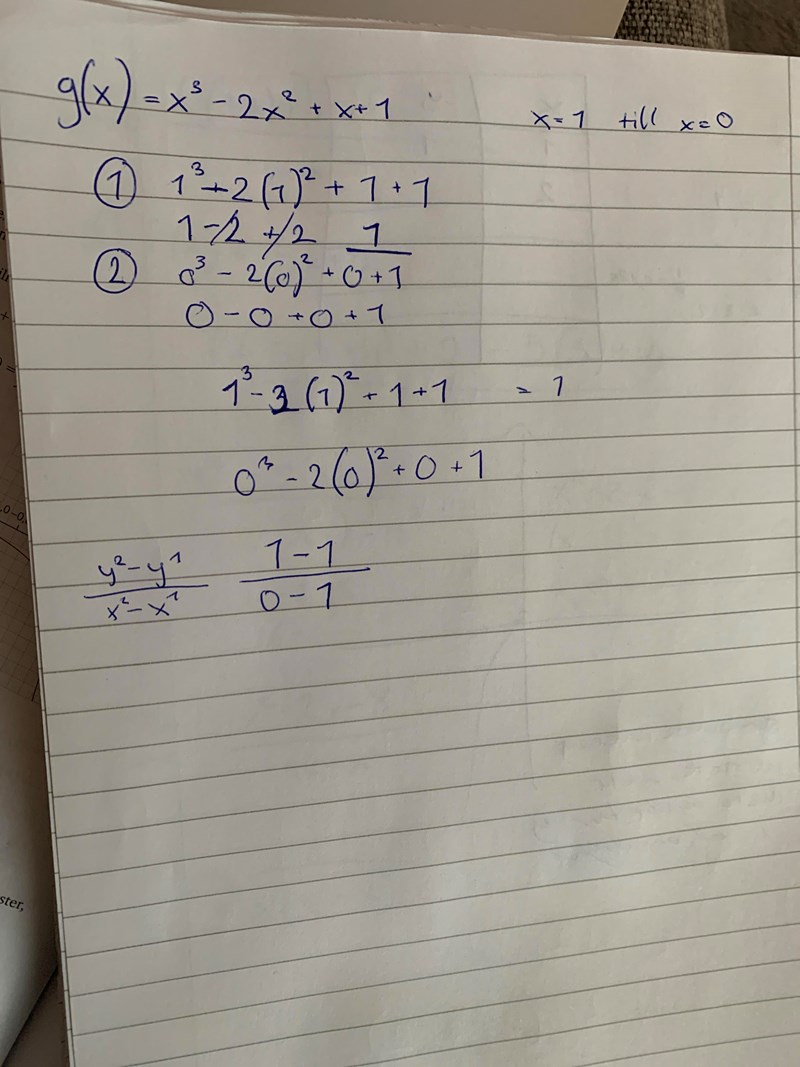 g(x) = x³ - 2x² + x+1 x=1 till x=0
① 1³ - 2(1)² + 1 + 1
1 - 2 + 2 1
② 0³ - 2(0)² + 0 + 1
0 - 0 + 0 + 1
1³ - 2(1)² + 1 + 1 = 1
0³ - 2(0)² + 0 + 1
y² - y¹ 1 - 1
x² - x¹ 0 - 1
ster,